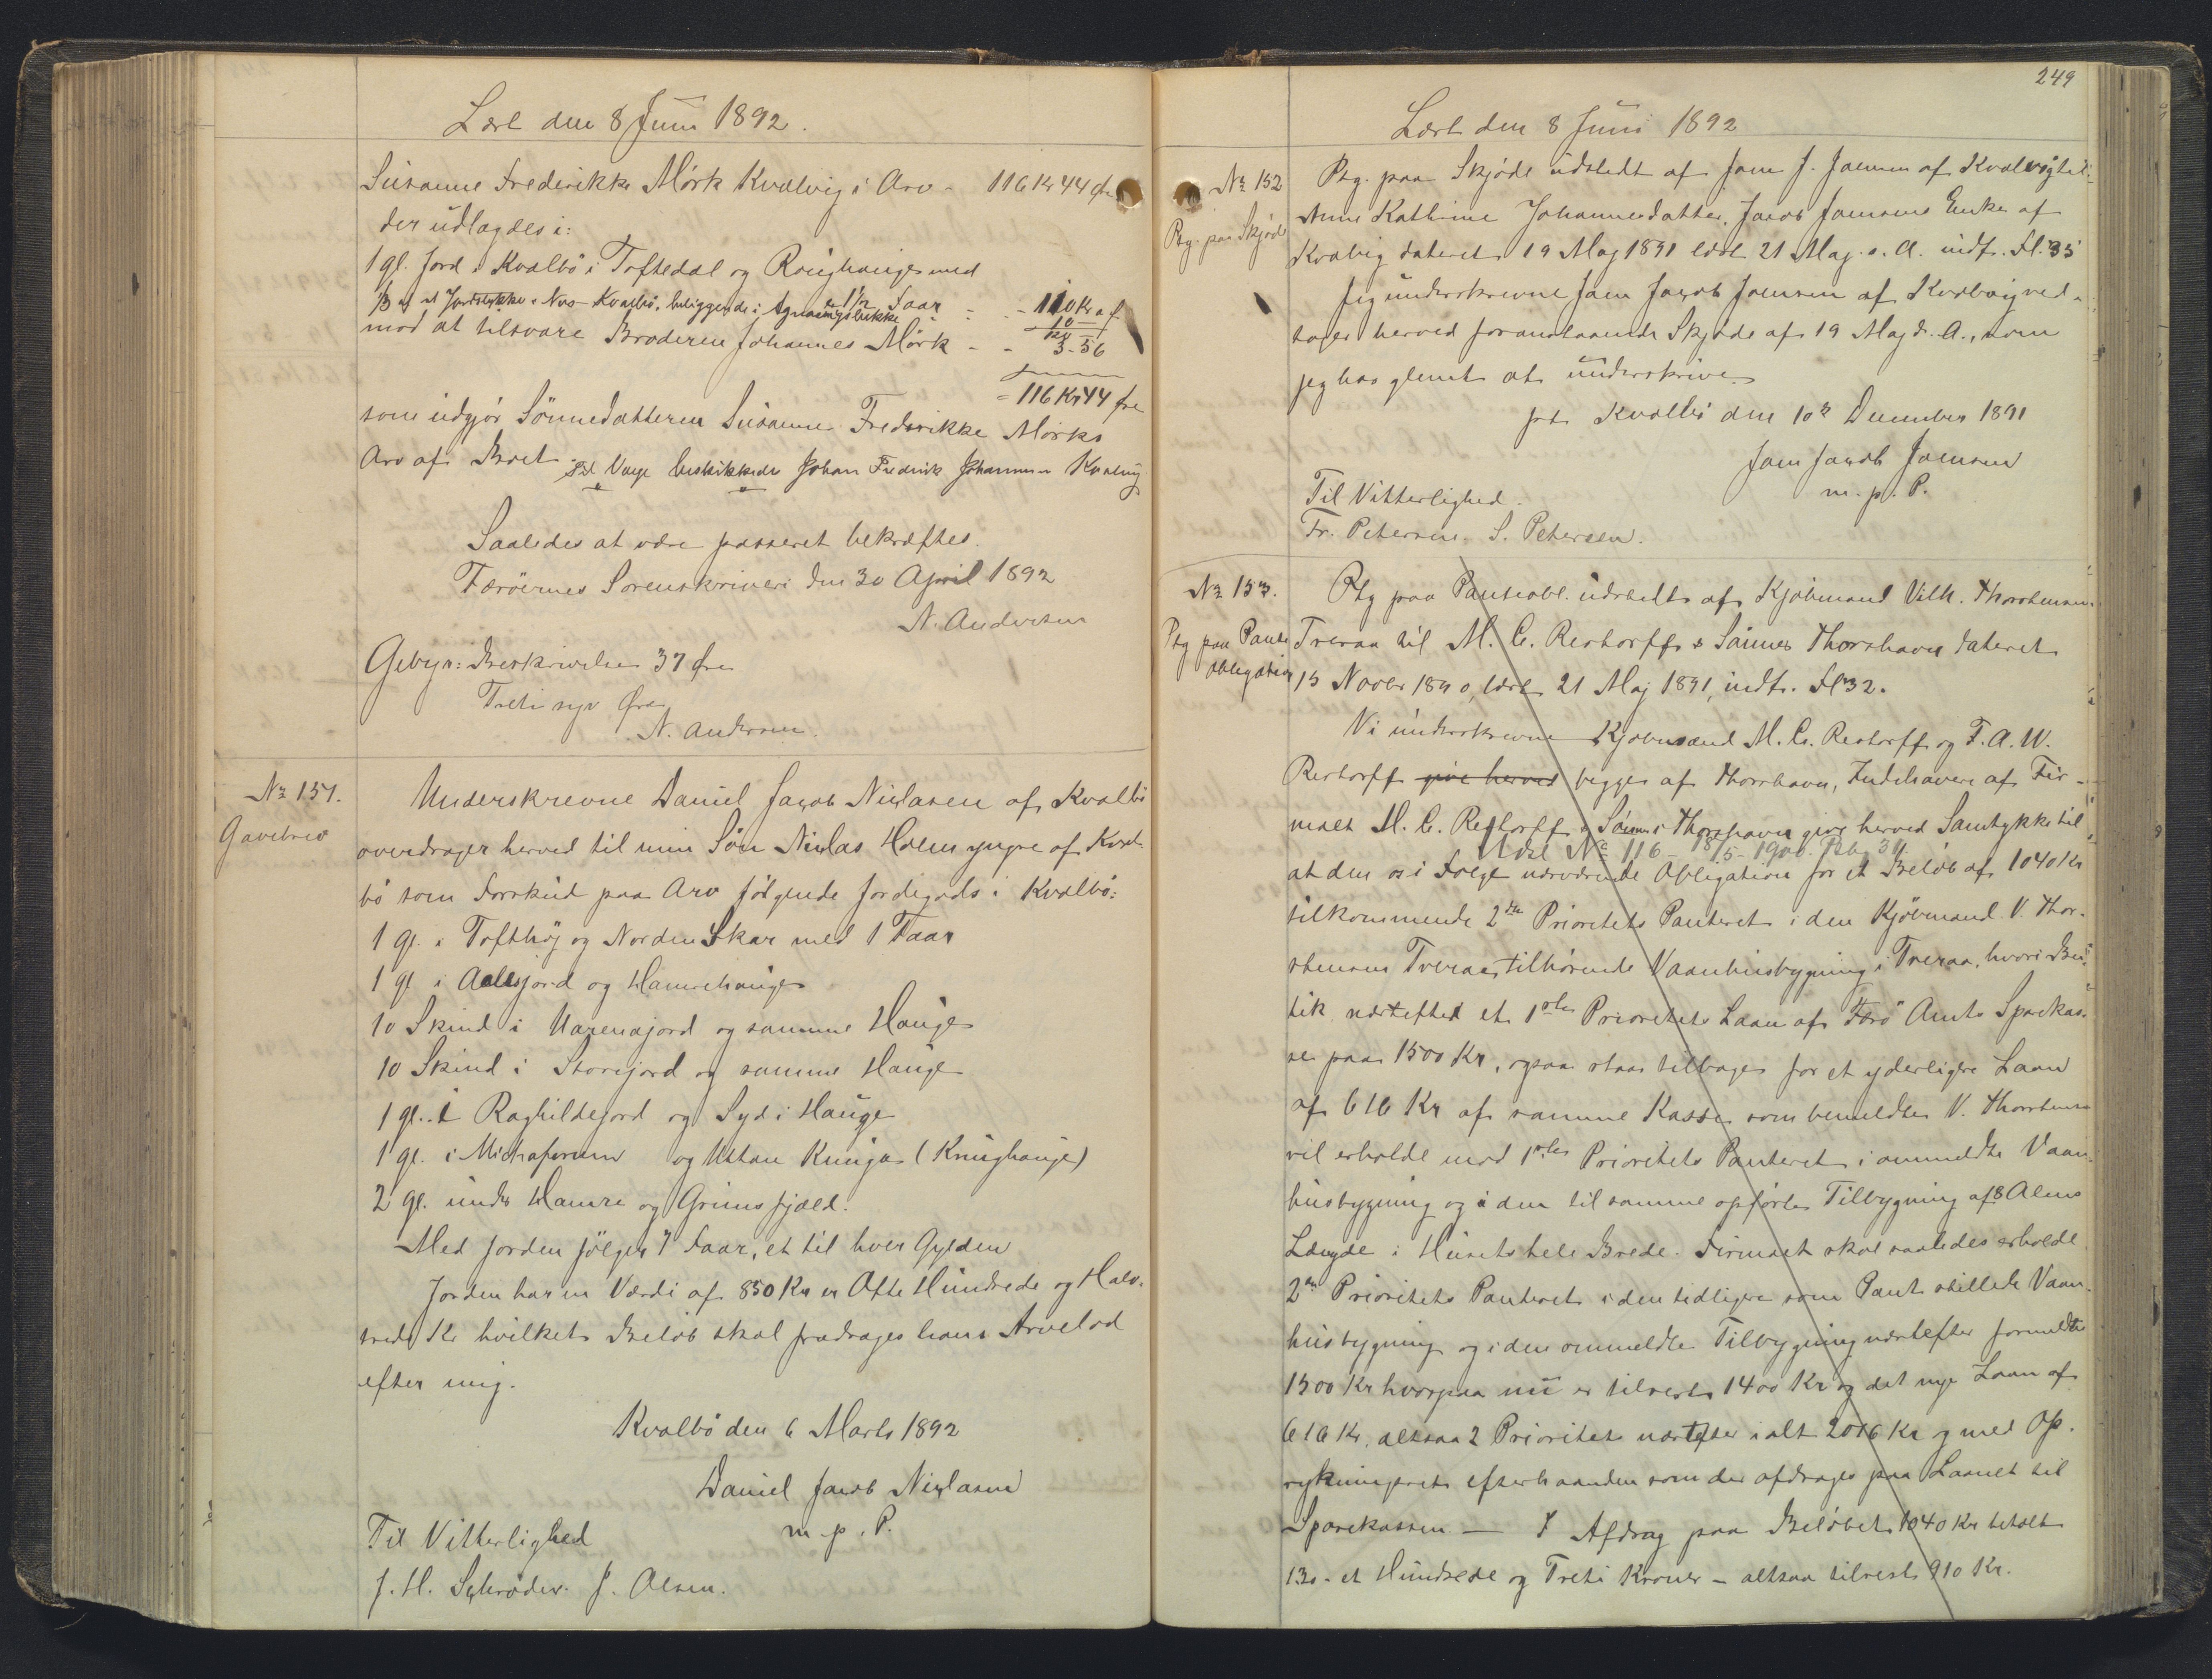 Læst den 8 Juni 1892.
Susanne Frederikke Mørk Kvalvig i Arv - 116 Kr 44 Øre
der udlagdes i:
1 gl. Jord i Kvalbö i Toftedal og Røighauge med
1/3 af et Jordstykke i Nes Kvalbö, beliggende i
1 1/2 Faar - - 110 Kr
10
mod at tilsvare Broderen Johannes Mørk - - Kr 3-56
= 116 Kr 44 Øre
som udgjör Sönnedatteren Susanne Fredrikke Mörks
Arv af Boet. Til Værge beskikkedes Johan Fredrik Johannesen Kvalvig
Saaledes at være passeret bekræftes.
Færöernes Sorenskriveri den 30 April 1892
N. Andersen
Gebyr: Beskrivelse 37 Øre
Treti syv Øre
N. Andersen.
No 151.
Gavebrev
Underskrevne Daniel Jacob Niclasen af Kvalbö
overdrager herved til min Sön Niclas Holm yngre af Kval-
bö som Forskud paa Arv fölgende Jordegods i Kvalbö:
1 gl. i Tofthöj og Norden Skar med 1 Faar
1 gl i Aalesjord og Hamrehauge
10 Skind i Marenasjord og samme Hauge
10 Skind i Storejord og samme Hauge
1 gl. i Raghildejord og Syd i Hauge
1 gl. i og Uttan Knuga (Knughauge)
2 gl. under Hamre og Grimsfjæld.
Med Jorden fölger 7 Faar, et til hver Gylden
Jorden har en Værdi af 850 Kr er Otte Hundrede og Halv-
treds Kr hvilket Belöb skal fradrages hans Arvelod
efter mig.
Kvalbö den 6 Marts 1892
Daniel Jacob Niclasen
m. p. P.
Til Vitterlighed
J. H. Schröder. J. Olsen.
249
Læst den 8 Juni 1892
No 152
Ptg. paa Skjøde
Ptg. paa Skjöde udstedt af Joen J. Joensen af Kvalvig til
Anne Kathrine Johannesdatter, Jacob Joensens Enke af
Kvalvig dateret 19 Maj 1891 læst 21 Maj s. A. indf. Fl. 35
Jeg underskrevne Joen Jacob Joensen af Kvalvig ved-
tager herved foranstaaende Skjøde af 19 Maj d. A., som
jeg har glemt at underskrive.
pt. Kvalbö den 10de December 1891
Joen Jacob Joensen
m. p. P.
Til Vitterlighed.
Fr. Petersen. S. Petersen.
No 153.
Ptg paa Pante
obligation
Ptg paa Panteobl. udstedt af Kjöbmand Vilh. Thorstensen
Tveraa til M. C. Restorff & Sönner Thorshavn dateret
15 Novbr 1890, læst 21 Maj 1891, indf. Fl 32.
Vi underskrevne Kjöbmænd M. C. Restorff og F. A. W.
Restorff give herved begge af Thorshavn, Indehavere af Fir-
maet M. C. Restorff & Sönner i Thorshavn give herved Samtykke til
Udsl No 116 - 18/5 - 1900.
at den os i Fölge nærværende Obligation for et Belöb af 1040 Kr
tilkommende 2den Prioritets Panteret i den Kjöbmand V. Thor-
stensens Tveraa tilhörende Vaanhusbygning i Tveraa, hvori Bu-
tik næstefter et 1ste Prioritets Laan af Færö Amts Sparekas-
se paa 1500 Kr, ogsaa staar tilbage for et yderligere Laan
af 616 Kr af samme Kasse som bemeldte V. Thorstensen
vil erholde mod 1ste Prioritets Panteret i ommeldte Vaan-
husbygning og i den til samme opförte Tilbygning af 8 Alens
Længde i Husets hele Brede. Firmaet skal saaledes erholde
2den Prioritets Panteret i den tidligere som Pant stillede Vaan-
husbygning og i den ommeldte Tilbygning næstefter formeldte
1500 Kr hvorpaa nu er tilrest 1400 Kr og det nye Laan af
616 Kr, altsaa 2 Prioritet næstefter ialt 2016 Kr og med Op-
rykningsret efterhaanden som der afdrages paa Laanet til
Sparekassen — I Afdrag paa Belöbet 1040 Kr betalt
130 - et Hundrede og Treti Kroner - altsaa tilrest 910 Kr.